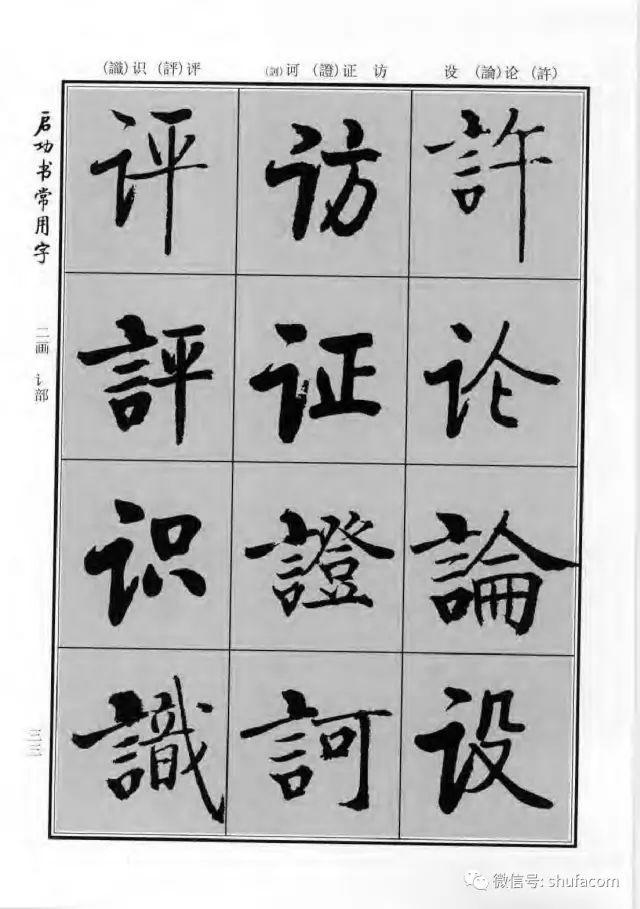 (識)识 (評)评
(訶)诃 (證)证 访
设 (論)论 (許)
启功书常用字
二画 讠部
三三
許
论
論
设
访
证
證
訶
评
評
识
識
微信号: shufacom